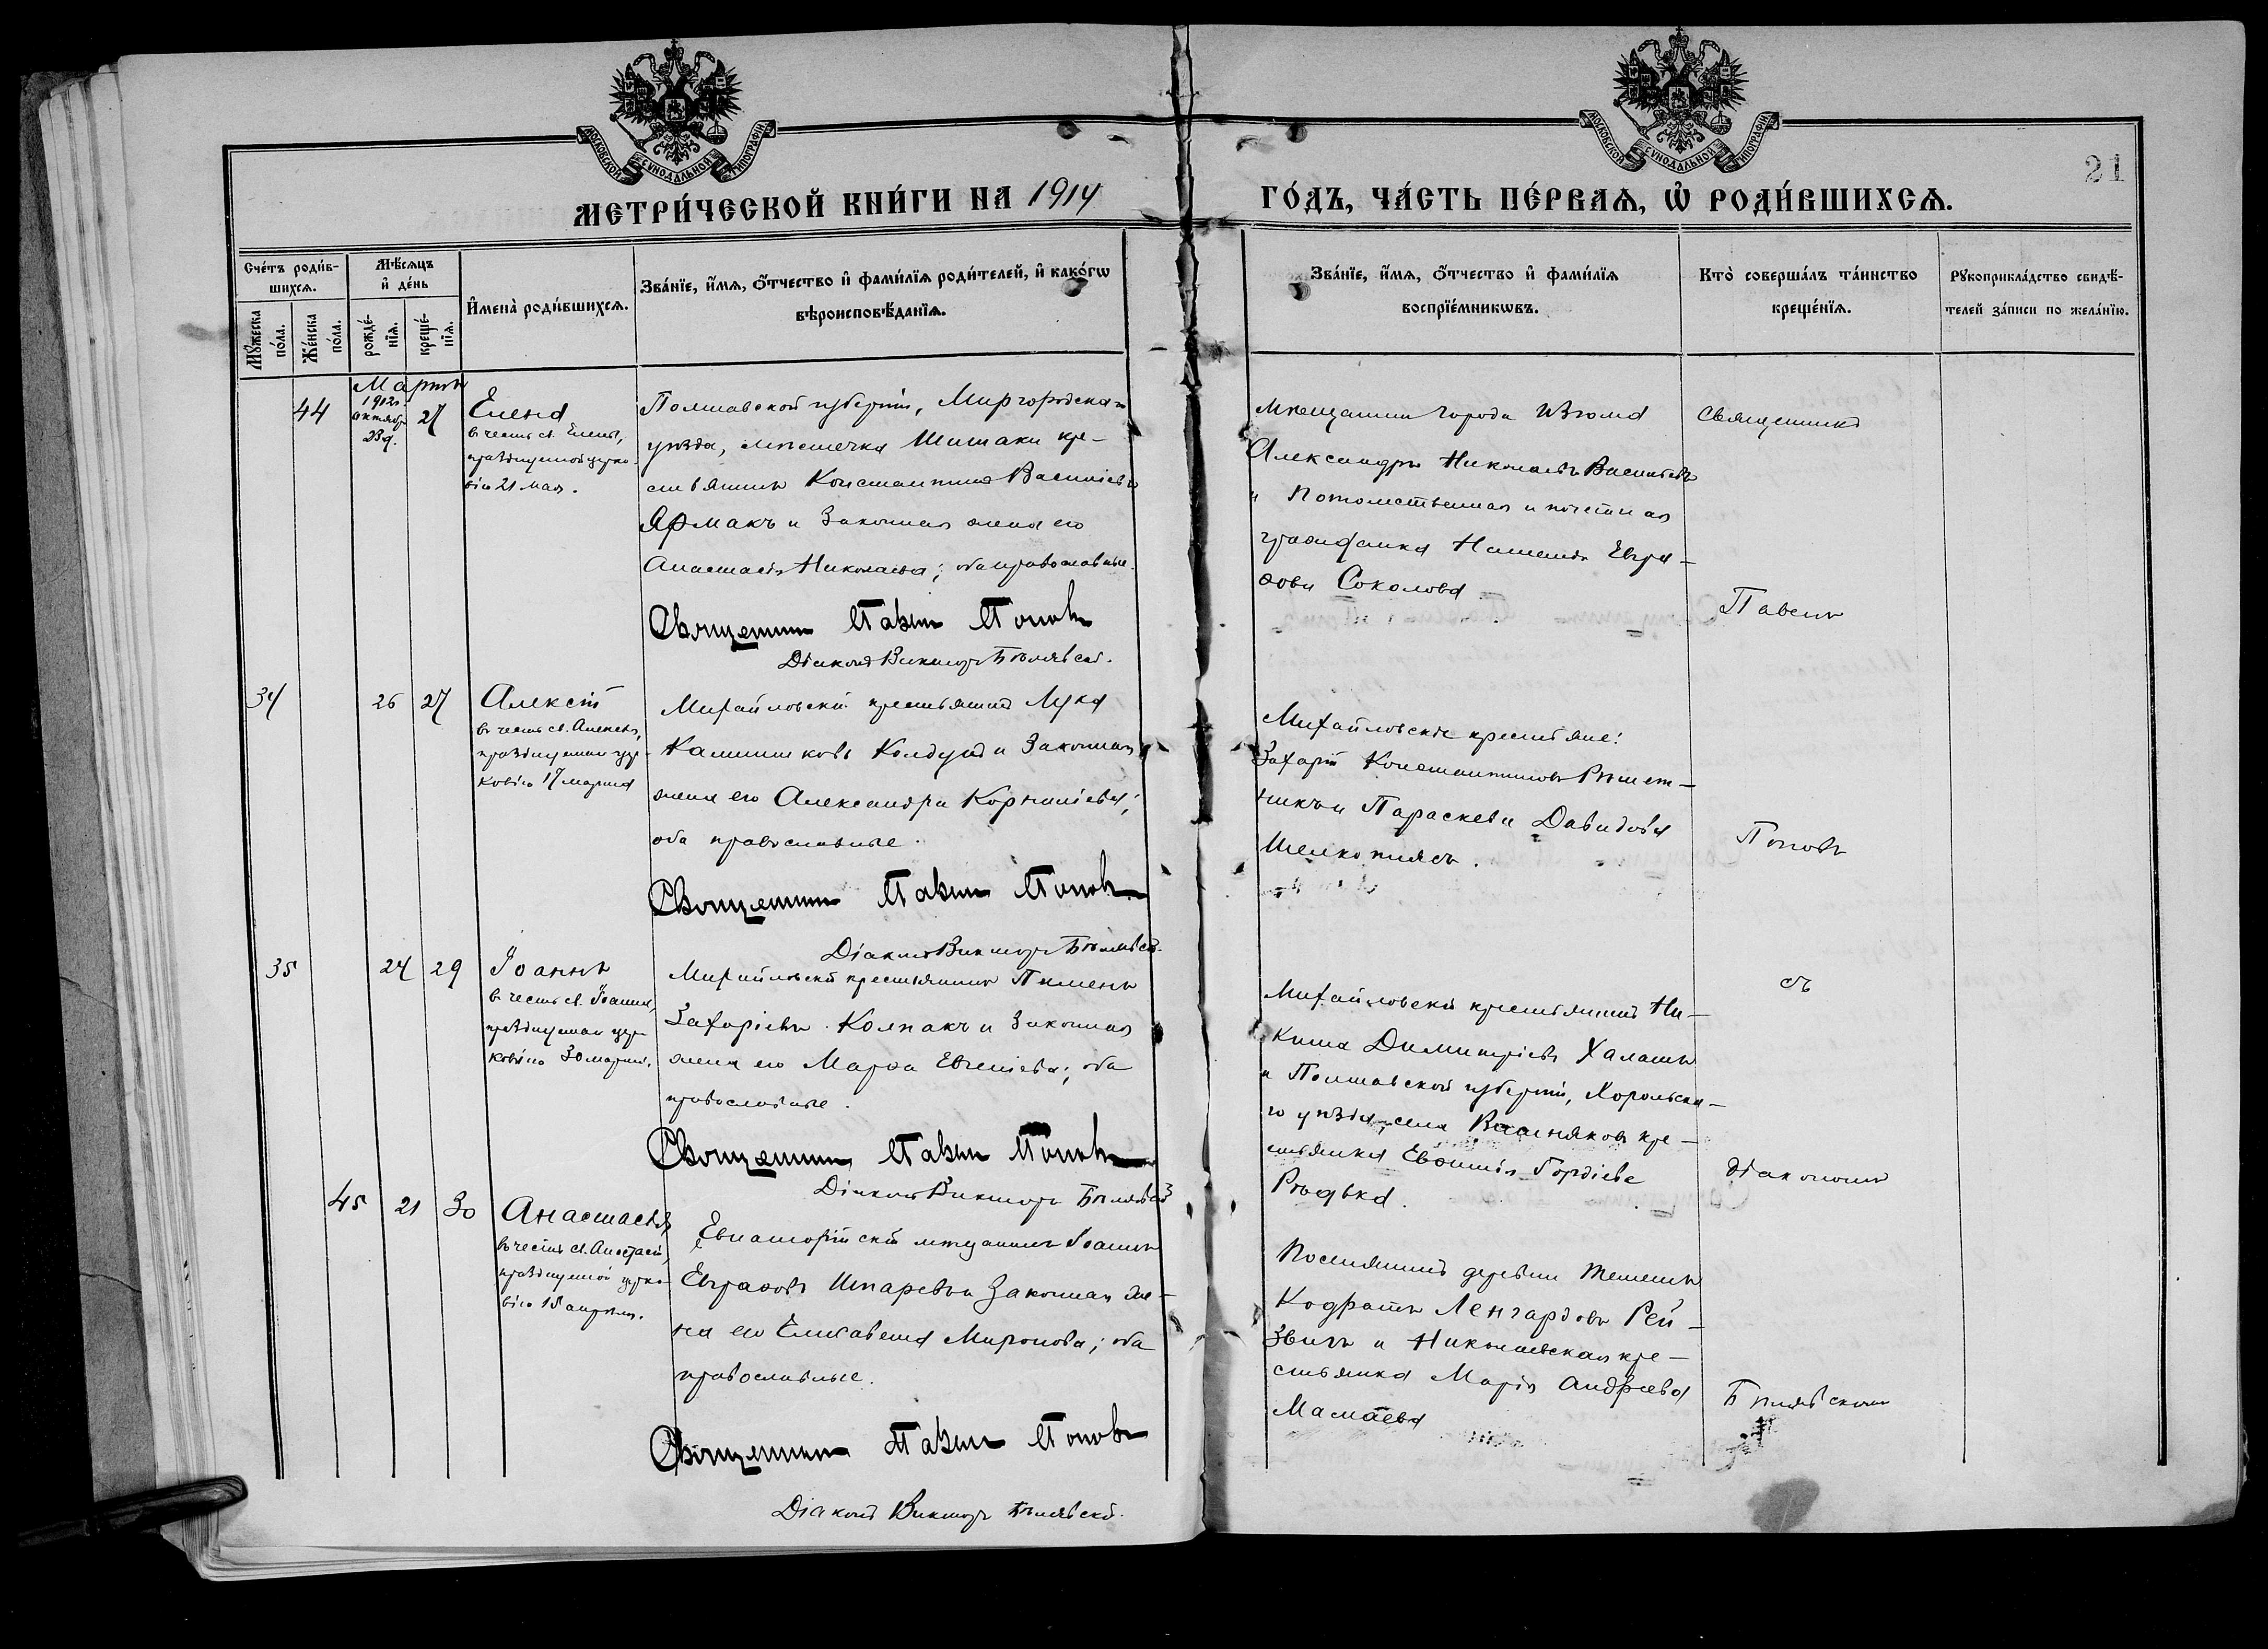 МОСКОВСКОЙ СѴНОДАЛЬНОЙ ТИПОГРАФІИ
МОСКОВСКОЙ СѴНОДАЛЬНОЙ ТИПОГРАФІИ
21
МЕТРИ́ЧЕСКОЙ КНИ́ГИ НА 1914
ГО́ДЪ, ЧА́СТЬ ПЕ́РВАѦ, Ѡ҆ РОДИ́ВШИХСѦ.
Сче́тъ роди́в-
шихсѧ.
Мꙋ́жеска
по́ла.
Же́нска
по́ла.
Мѣ́сѧцъ
и҆ де́нь
рожде́-
нїѧ.
креще́-
нїѧ.
И҆мена̀ роди́вшихсѧ.
Зва́нїе, и҆́мѧ, ѻ҆́тчество и҆ фами́лїѧ роди́телей, и҆ како́гѡ
вѣроисповѣ́данїѧ.
Зва́нїе, и҆́мѧ, ѻ҆́тчество и҆ фами́лїѧ
воспрїе́мникѡвъ.
Кто̀ соверша́лъ та́инство
креще́нїѧ.
Рꙋкоприкла́дство свидѣ́-
телей за́писи по жела́нїю.
Мартъ
44
1912 г.
октябр
23 д.
27
Елена
въ честь св. Елены,
празднуемой церко-
вію 21 мая.
Полтавской губерніи, Миргородскаго
уѣзда, мѣстечка Шишаки кре-
стьянинъ Константинъ Васильевъ
Ярмакъ и законная жена его
Анастасія Николаева; оба православные.
Священникъ Павелъ Поповъ
Діаконъ Викторъ Бѣлявскій.
Мѣщанинъ города Изюма
Александръ Николаевъ Васильевъ
и потомственная и почетная
гражданка Наталія Евгра-
фова Соколова.
Священникъ
Павелъ
34
26
27
Алексій
въ честь св. Алексія,
празднуемаго цер-
ковію 17 марта
Михайловскій крестьянинъ Лука
Каллиниковъ Колдунъ и законная
жена его Александра Корниліева;
оба православные.
Священникъ Павелъ Поповъ
Діаконъ Викторъ Бѣлявскій.
Михайловскіе крестьяне:
Захарій Константиновъ Рѣшет-
никъ и Параскева Давидова
Шелкоплясъ.
Поповъ
35
24
29
Іоаннъ
въ честь св. Іоанна,
празднуемаго цер-
ковію 30 марта.
Михайловскій крестьянинъ Пименъ
Захаріевъ Колпакъ и законная
жена его Марфа Евгеніева; оба
православные.
Священникъ Павелъ Поповъ
Діаконъ Викторъ Бѣлявскій
Михайловскій крестьянинъ Ни-
кита Димитріевъ Халаимъ
и Полтавской губерніи, Хорольска-
го уѣзда, села кре-
стьянка Евфимія Гордіева
Рѣдька.
съ
діакономъ
45
21
30
Анастасія
въ честь св. Анастасіи,
празднуемой церко-
вію 15 апрѣля.
Евпаторійскій мѣщанинъ Іоаннъ
Евграфовъ Шпаревъ и законная же-
на его Елисавета Миронова; оба
православные.
Священникъ Павелъ Поповъ
Діаконъ Викторъ Бѣлявскій.
Поселянинъ деревни
Кодратъ Ленгардовъ Рей-
звихъ и Николаевская кре-
стьянка Марія Андреева
Мамаева
Бѣлявскимъ